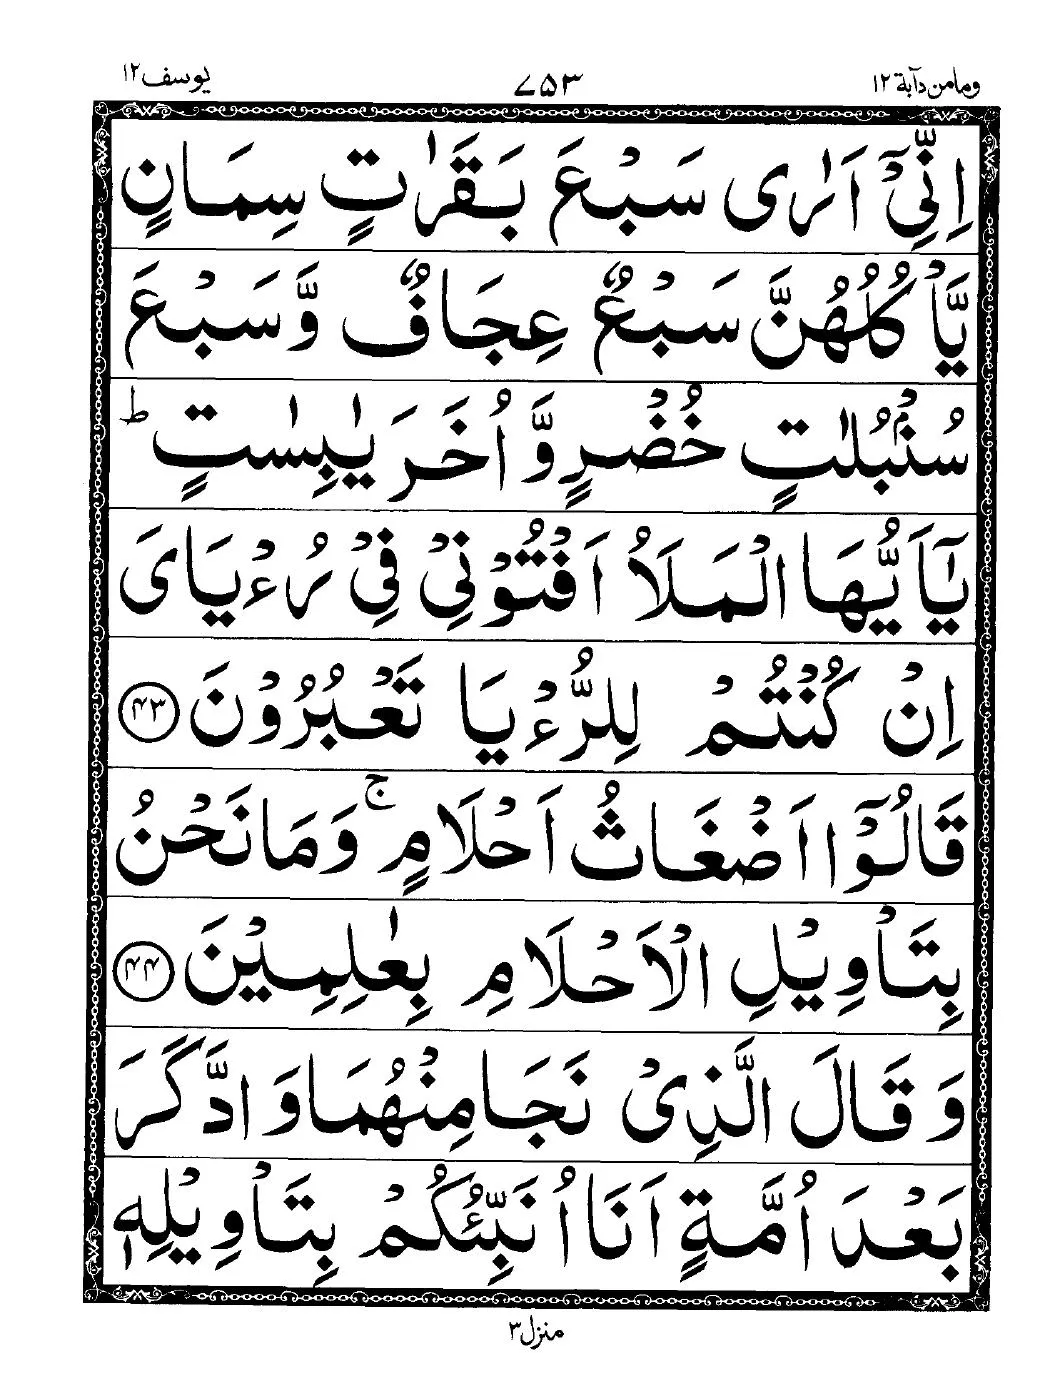 وما من دآبة ١٢
٧٥٣
يوسف ١٢
اِنِّىْۤ اَرٰى سَبْعَ بَقَرٰتٍ سِمَانٍ
يَّاْكُلُهُنَّ سَبْعٌ عِجَافٌ وَّسَبْعَ
سُنْۢبُلٰتٍ خُضْرٍ وَّاُخَرَ يٰبِسٰتٍ ؕ
يٰۤاَيُّهَا الْمَلَاُ اَفْتُوْنِىْ فِىْ رُءْيَاىَ
اِنْ كُنْتُمْ لِلرُّءْيَا تَعْبُرُوْنَ ﴿۴۳﴾
قَالُوْۤا اَضْغَاثُ اَحْلَامٍ ۚ وَمَا نَحْنُ
بِتَاْوِيْلِ الْاَحْلَامِ بِعٰلِمِيْنَ ﴿۴۴﴾
وَقَالَ الَّذِىْ نَجَا مِنْهُمَا وَادَّكَرَ
بَعْدَ اُمَّةٍ اَنَا اُنَبِّئُكُمْ بِتَاْوِيْلِهٖ
منزل ٣